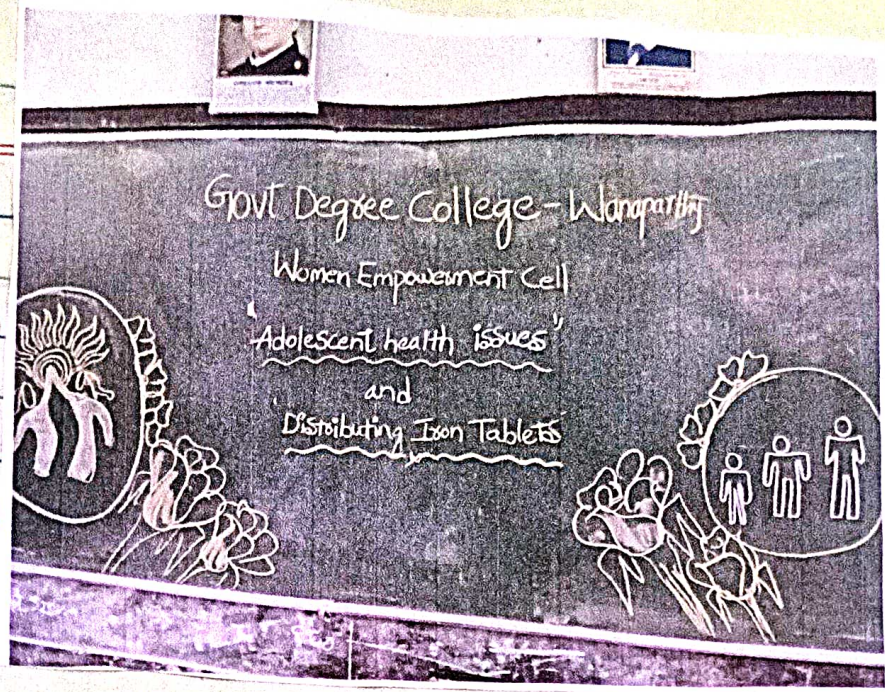 Govt Degree College - Wanaparthy
Women Empowerment Cell
"Adolescent health issues"
and
Distributing Iron Tablets